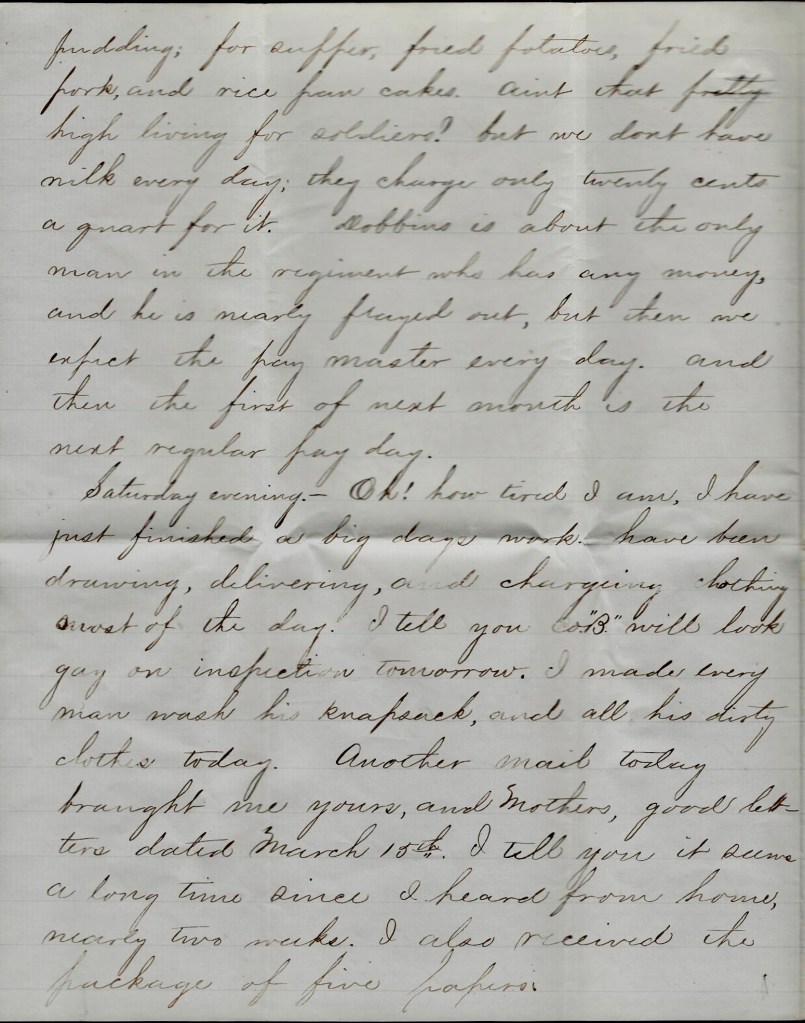 pudding; for supper, fried potatoes, fried
pork, and rice pan cakes. Aint that pretty
high living for soldiers? but we dont have
milk every day; they charge only twenty cents
a quart for it. Dobbins is about the only
man in the regiment who has any money,
and he is nearly frayed out, but then we
expect the pay master every day. and
then the first of next month is the
next regular pay day.
Saturday evening.— Oh! how tired I am, I have
just finished a big days work. have been
drawing, delivering, and chargeing clothing
most of the day. I tell you Co. "B." will look
gay on inspection tomorrow. I made every
man wash his knapsack, and all his dirty
clothes today. Another mail today
braught me yours, and Mothers, good let-
ters dated March 15th. I tell you it seems
a long time since I heard from home,
nearly two weeks. I also received the
package of five papers.